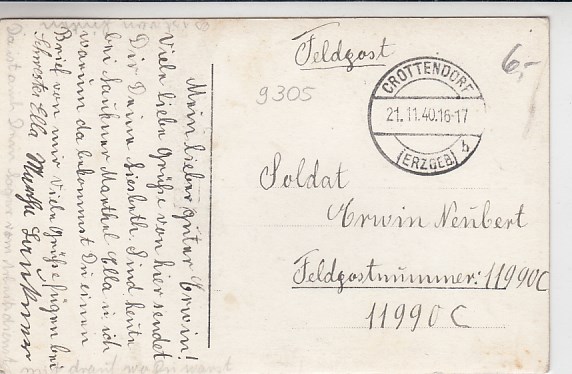 Feldpost
6,-
9305
CROTTENDORF
21.11.40.16-17
(ERZGEB) b
Soldat
Erwin Neubert
Feldpostnummer: 11990C
11990C
Mein lieber guter Erwin!
Viele liebe Grüße von hier sendet
Dir Deine Liesbeth. Sind heute
bei Laukner Marthel Ella u. ich
warum da bekommst Du einen
Brief von mir Viele Grüße fügen bei
Schwester Ella Martha Laukner